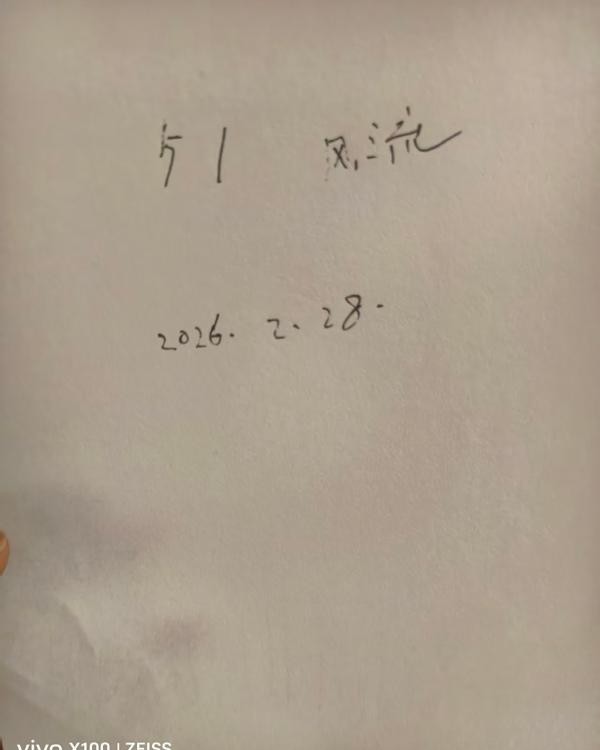 51 风流
2026. 2. 28.
vivo X100 | ZEISS